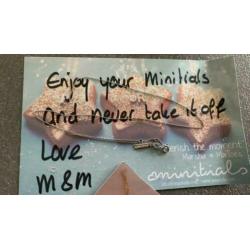 Enjoy your Minitials
And never take it off
Love
M&M
Cherish the moment
Marsha & Marloes
minitials